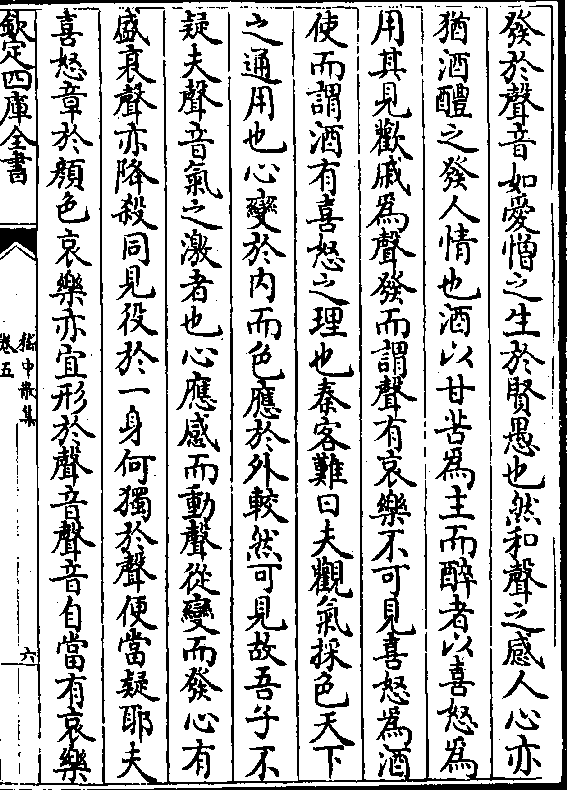 發於聲音如愛憎之生於賢愚也然和聲之感人心亦
猶酒醴之發人情也酒以甘苦為主而醉者以喜怒為
用其見歡戚為聲發而謂聲有哀樂不可見喜怒為酒
使而謂酒有喜怒之理也秦客難曰夫觀氣採色天下
之通用也心變於内而色應於外較然可見故吾子不
疑夫聲音氣之激者也心應感而動聲從變而發心有
盛衰聲亦降殺同見役於一身何獨於聲便當疑耶夫
喜怒章於顔色哀樂亦宜形於聲音聲音自當有哀樂
欽定四庫全書
嵇中散集
卷五
六